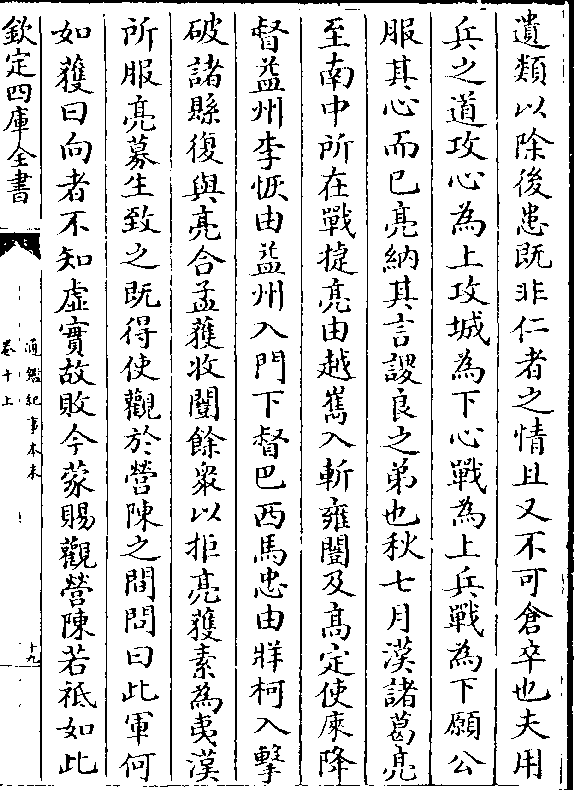 遺類以除後患既非仁者之情且又不可倉卒也夫用
兵之道攻心為上攻城為下心戰為上兵戰為下願公
服其心而已亮納其言謖良之弟也秋七月漢諸葛亮
至南中所在戰㨗亮由越嶲入斬雍闓及高定使庲降
督益州李恢由益州入門下督巴西馬忠由牂柯入擊
破諸縣復與亮合孟獲收闓餘衆以拒亮獲素為夷漢
所服亮募生致之既得使觀於營陳之間問曰此軍何
如獲曰向者不知虛實故敗今蒙賜觀營陳若祗如此
欽定四庫全書
通鑑紀事本末
卷十上
十九